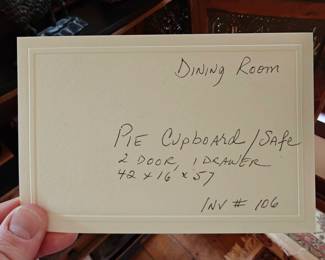 Dining Room
Pie Cupboard/Safe
2 Door, 1 Drawer
42 x 16 x 57
Inv # 106